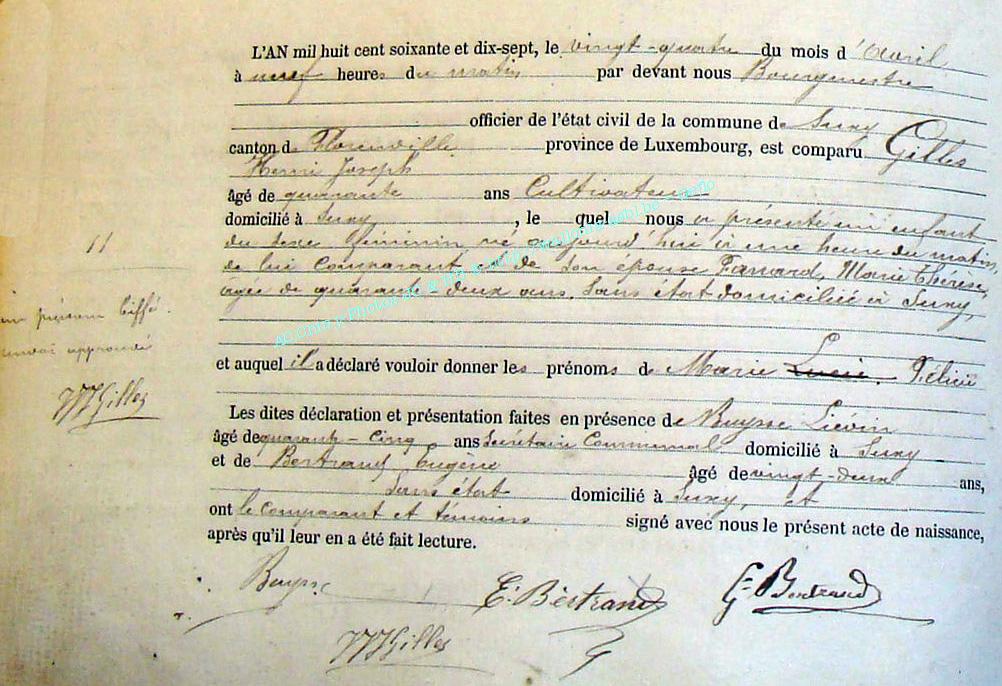 L'AN mil huit cent soixante et dix-sept, le vingt-quatre du mois d'Avril
à neuf heures du matin par devant nous Bourgmestre
officier de l'état civil de la commune de Suxy
canton de Florenville province de Luxembourg, est comparu Gilles
Henri Joseph
âgé de quarante ans Cultivateur
domicilié à Suxy, le quel nous a présenté un enfant
du sexe féminin né aujourd'hui à une heure du matin
de lui comparant et de son épouse Marie Thérèse,
agée de quarante-deux ans, Sans état domiciliée à Suxy,
11
un prénom biffé.
renvoi approuvé
HJGilles
et auquel il a déclaré vouloir donner les prénoms de Marie Lucie. Félicie
Les dites déclaration et présentation faites en présence de Buysse Liévin
âgé de quarante-cinq ans Secrétaire Communal domicilié à Suxy
et de Bertrand Eugène âgé de vingt-deux ans,
Sans état domicilié à Suxy, et
ont le comparant et témoins signé avec nous le présent acte de naissance,
après qu'il leur en a été fait lecture.
Buysse E. Bertrand Bertrand
HJGilles